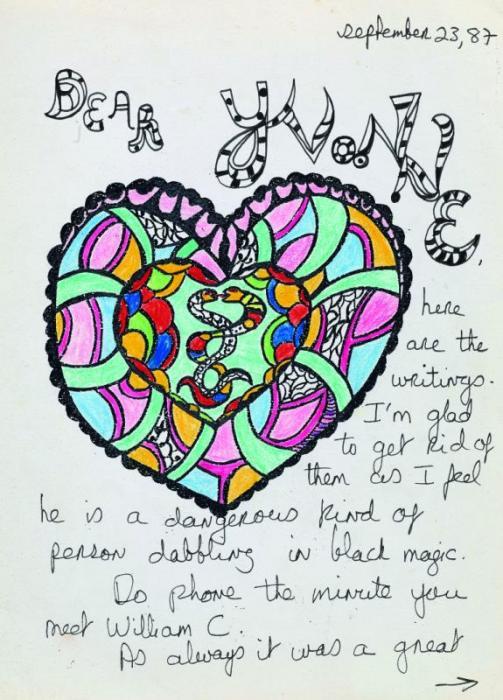 september 23, 87
DEAR YVONNE,
here
are the
writings.
I'm glad
to get rid of
them as I feel
he is a dangerous kind of
person dabbling in black magic.
Do phone the minute you
meet William C.
As always it was a great
→